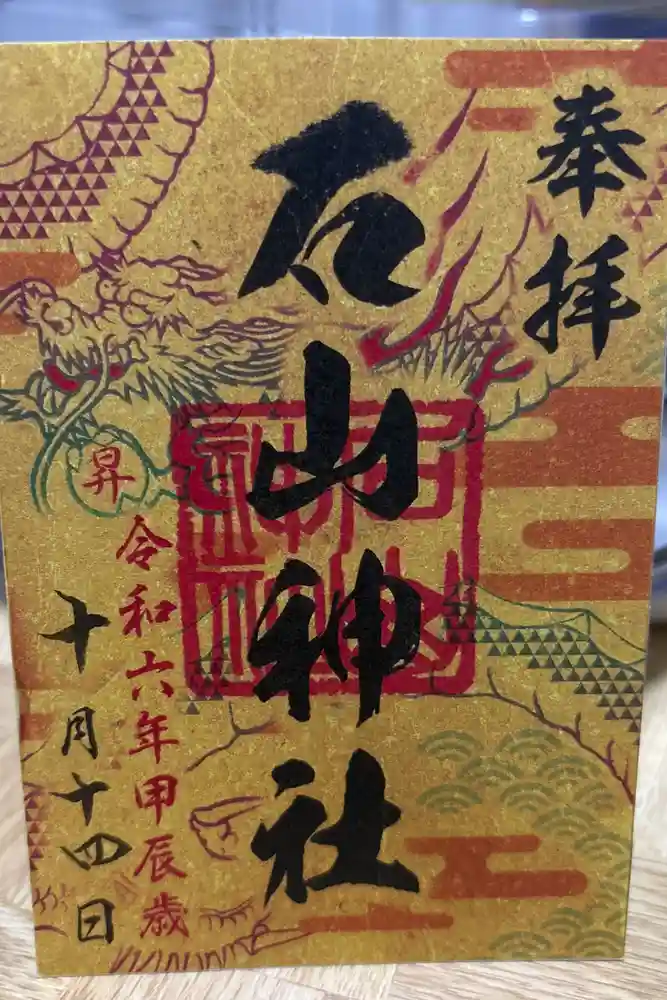 奉拝
石山神社
昇
令和六年甲辰歳
十月十四日